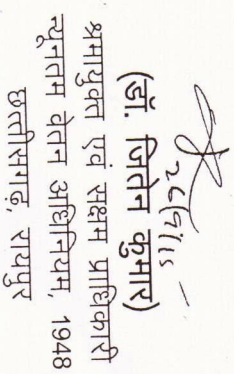 (डॉ. जितेन कुमार)
श्रमायुक्त एवं सक्षम प्राधिकारी
न्यूनतम वेतन अधिनियम, 1948
छत्तीसगढ़, रायपुर